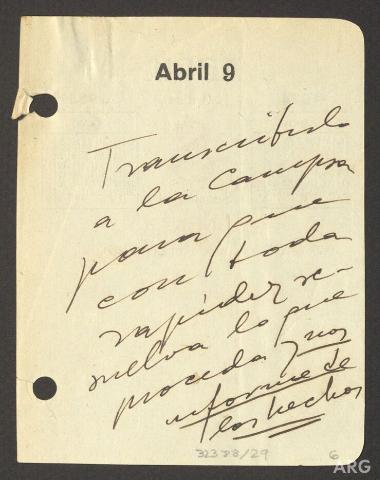 Abril 9
Transcríbalo
a la Campsa
para que
con toda
rapidez re-
suelva lo que
proceda y nos
informe de
los hechos
32388/29
6
ARG